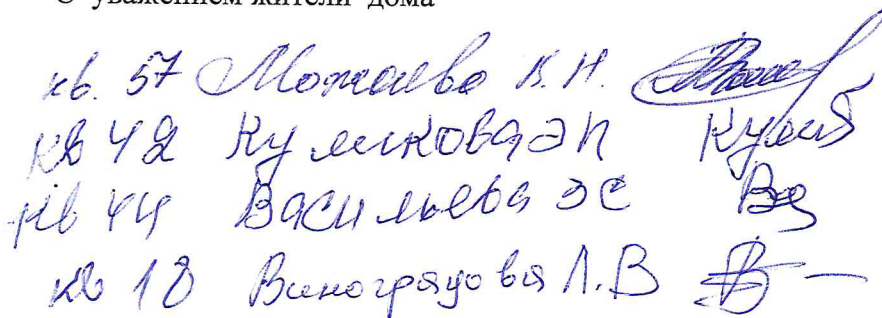 С уважением жители дома
кв. 57 Можаева В. Н.
кв 42 Куликова Э П Кулик
кв 44 Васильева Э С Вас
кв 18 Виноградова Л. В